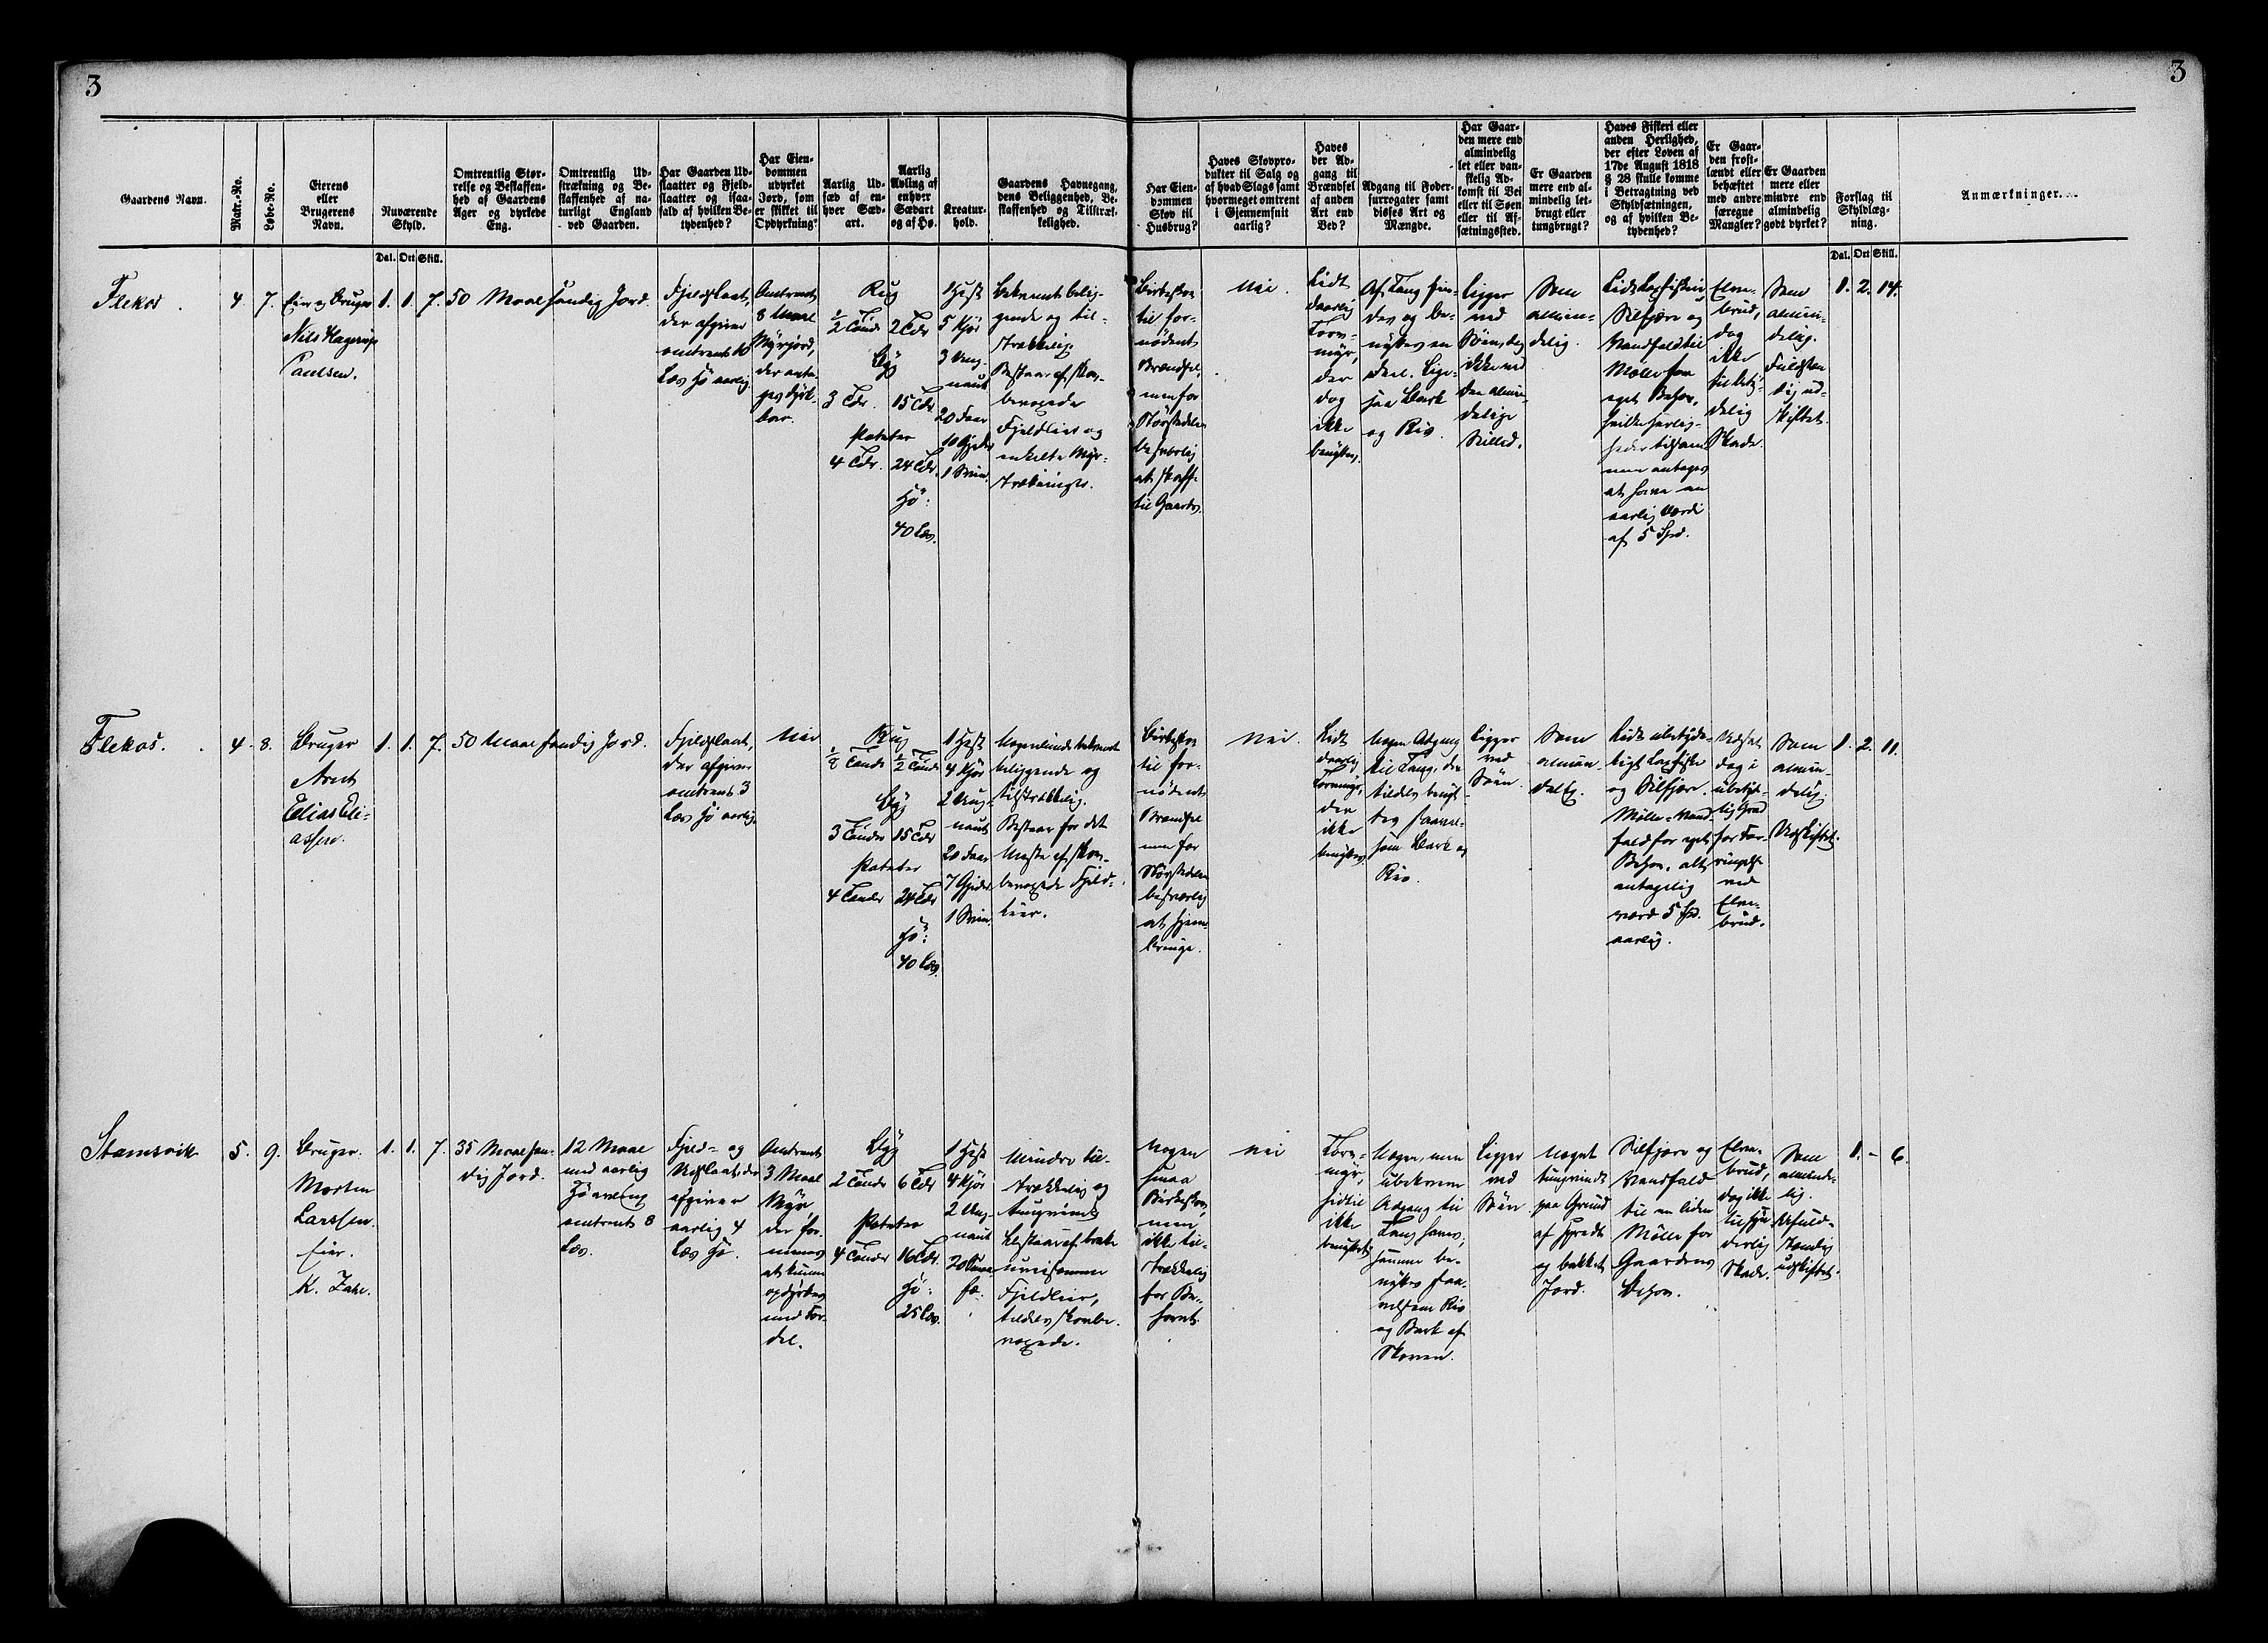 3
3
Gaardens Navn.
Matr.-No.
Løbe-No.
Eierens
eller
Brugerens
Navn.
Nuværende
Skyld.
Dal. Ort Skill.
Omtrentlig Stør-
relse og Beskaffen-
hed af Gaardens
Ager og dyrkede
Eng.
Omtrentlig Ud-
strækning og Be-
skaffenhed af na-
turligt England
ved Gaarden.
Har Gaarden Ud-
slaatter og Fjeld-
slaatter og isaa-
fald af hvilken Be-
tydenhed?
Har Eien-
dommen
udyrket
Jord, som
er skikket til
Opdyrkning?
Aarlig Ud-
sæd af en-
hver Sæd-
art.
Aarlig
Avling af
enhver
Sædart
og af Hø.
Kreatur-
hold.
Gaardens Havnegang,
dens Beliggenhed, Be-
skaffenhed og Tilstræk-
kelighed.
Har Eien-
dommen
Skov til
Husbrug?
Haves Skovpro-
dukter til Salg og
af hvad Slags samt
hvormeget omtrent
i Gjennemsnit
aarlig?
Haves
der Ad-
gang til
Brændsel
af anden
Art end
Ved?
Adgang til Foder-
surrogater samt
disses Art og
Mængde.
Har Gaar-
den mere end
almindelig
let eller van-
skelig Ad-
komst til Vei
eller til Søen
eller til Af-
sætningssted.
Er Gaarden
mere end al-
mindelig let-
brugt eller
tungbrugt?
Haves Fiskeri eller
anden Herlighed,
der efter Loven af
17de August 1818
§ 28 skulle komme
i Betragtning ved
Skyldsætningen,
og af hvilken Be-
tydenhed?
Er Gaar-
den frost-
lændt eller
behæftet
med andre
særegne
Mangler?
Er Gaarden
mere eller
mindre end
almindelig
godt dyrket?
Forslag til
Skyldlæg-
ning.
Dal. Ort Skill.
Anmærkninger.
Flekos.
4.
7.
Eier og Bruger
Nils Hagerup
Paulsen.
1. 1. 7.
50 Maal sandig Jord.
Fjeldslaat,
der afgiver
omtrent 10
Læs Hø aarlig.
Omtrent
8 Maal
Myrjord,
der anta-
ges dyrk-
bar.
Rug
½ Tønde
2 Tdr
Byg
3 Tdr.
15 Tdr.
Poteter
4 Tdr.
24 Tdr.
Hø:
40 Læs.
1 Hest
5 Kjør
3 Ung-
naut
20 Faar
10 Gjeder
1 Sviin.
Bekvemt belig-
gende og til-
strækkelig.
Bestaar af skov-
bevoxede
Fjeldlier og
enkelte Myr-
strækninger.
Birkeskov
til for-
nødent
Brændsel,
men for
Størstedelen
besværlig
at skaffe
til Gaarden.
Nei.
Lidt
daarlig
Torv-
myr,
der
dog
ikke
benyttes.
Af Tang fin-
des og be-
nyttes en
Deel. Lige-
saa Bark
og Ris.
Ligger
ved
Søen, dog
ikke ved
den almin-
delige
Skibled.
Som
almin-
delig.
Lidt Laxfiskeri
Sildfjære og
Vandfald til
Mølle for
eget Behov,
hvilke Herlig-
heder tilsam-
men antages
at have en
aarlig Værdi
af 5 Spd.
Elve-
brud,
dog
ikke
til bety-
delig
Skade.
Som
almin-
delig.
Fuldstæn-
dig ud-
skiftet.
1. 2. 14.
Flekos.
4.
8.
Bruger
Arnt
Elias Eli-
assen.
1. 1. 7.
50 Maal sandig Jord.
Fjeldslaat,
der afgiver
omtrent 3
Læs Hø aarlig.
Nei
Rug
⅛ Tønde
½ Tønde
Byg
3 Tønder
15 Tdr
Poteter
4 Tønder
24 Tdr
Hø:
40 Læs.
1 Hest
4 Kjør
2 Ung-
naut
20 Faar
7 Gjeder
1 Sviin.
Nogenlunde bekvemt
beliggende og
tilstrækkelig.
Bestaar for det
Meste af skov-
bevoxede Fjeld-
lier.
Birkeskov
til for-
nødent
Brændsel
men for
Størstedelen
besværlig
at hjem-
bringe.
Nei.
Lidt
daarlig
Torvmyr,
der
ikke
benyttes.
Nogen Adgang
til Tang, der
tildels benyt-
tes saavel-
som Bark og
Ris.
Ligger
ved
Søen.
Som
almin-
delig.
Lidt ubetyde-
ligt Laxfiske
og Sildfjære.
Mølle-Vand-
fald for eget
Behov, alt
antagelig
værd 5 Spd.
aarlig.
Udsat
dog i
ubetyde-
lig Grad
for For-
ringelse
ved
Elve-
brud.
Som
almin-
delig.
Udskiftet.
1. 2. 11.
Stamsvik
5.
9.
Bruger.
Morten
Larssen.
Eier.
K. Zahl.
1. 1. 7.
35 Maal san-
dig Jord.
12 Maal
med aarlig
Høavling
omtrent 8
Læs.
Fjeld- og
Udslaat, der
afgiver
aarlig 4
Læs Hø.
Omtrent
3 Maal
Myr,
der for-
menes
at kunne
opdyrkes
med For-
del.
Byg
2 Tønder
6 Tdr
Poteter
4 Tønder
16 Tdr.
Hø:
25 Læs.
1 Hest
4 Kjør
2 Ung-
naut
20 Smaa-
fæ.
Mindre til-
strækkelig og
tungvindt.
Bestaar af bratte
ureisomme
Fjeldlier,
tildels skovbe-
voxede.
Nogen
smaa
Birkeskov,
men
ikke til-
strækkelig
for Be-
hovet.
Nei
Torv-
myr,
hidtil
ikke
benyttet.
Nogen, men
ubekvem
Adgang til
Tang haves,
samme be-
nyttes saa-
velsom Ris
og Bark af
Skoven.
Ligger
ved
Søen
Noget
tungvindt
paa Grund
af spredt
og bakket
Jord.
Sildfjære og
Vandfald
til en liden
Mølle for
Gaardens
Behov.
Elve-
brud,
dog ikke
til syn-
derlig
Skade.
Som
alminde-
lig.
Ufuld-
stændig
udskiftet.
1. - 6.